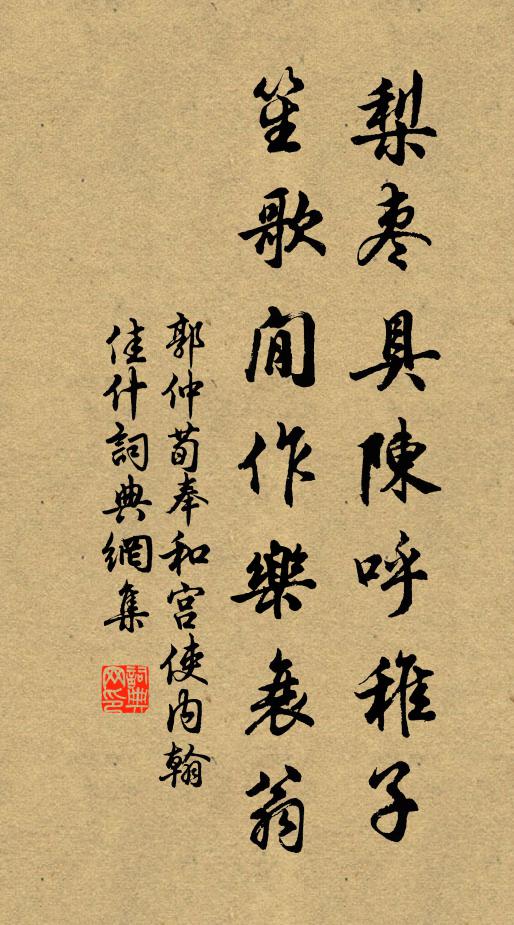 梨枣具陳呼稚子
笙歌间作樂衰翁
郭仲荀奉和宫使内翰
佳什詞典網集
詞典网印